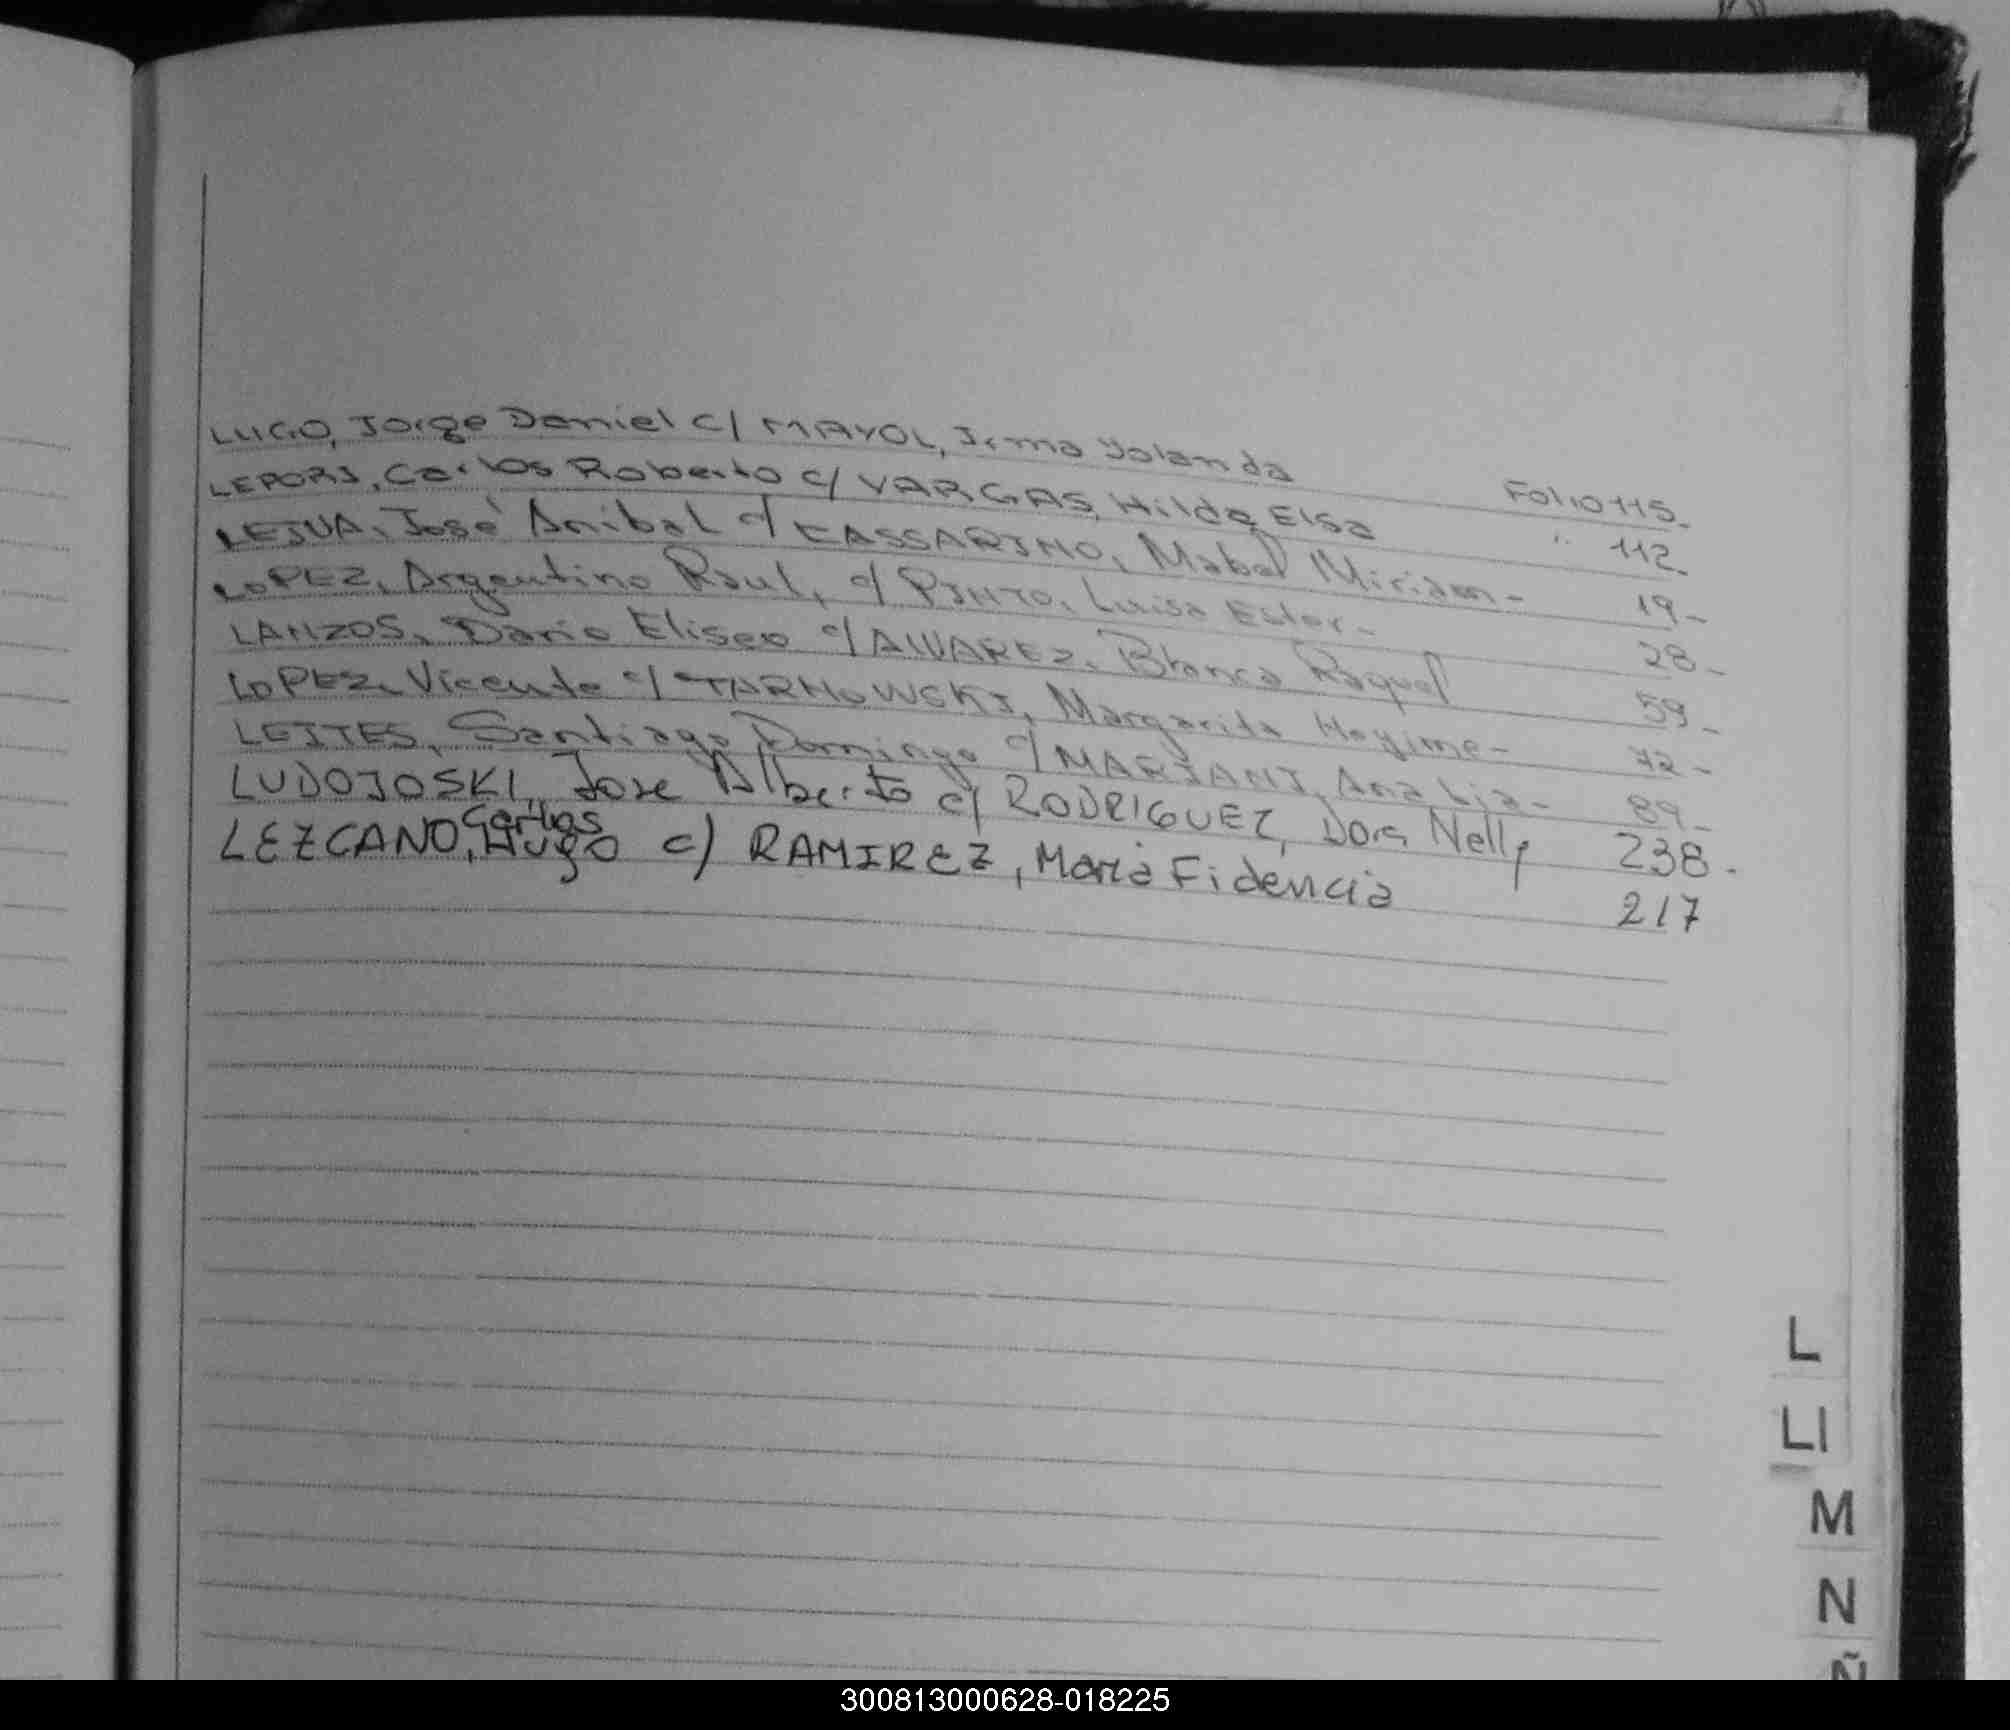 LUGO, Jorge Daniel c/ MAYOL, Irma Yolanda Folio 115-
LEPORI, Carlos Roberto c/ VARGAS, Hilda Elsa " 112-
LEIVA, José Anibal c/ CASSARINO, Mabel Miriam - 19-
LOPEZ, Argentino Raul, c/ PINTO, Luisa Ester - 28-
LANZOS, Dario Eliseo c/ ALVAREZ, Blanca Raquel 59-
LOPEZ, Vicente c/ TARNOWSKI, Margarita - 72-
LEITES, Santiago Domingo c/ MARIANI, Ana Lia - 89-
LUDOJOSKI, Jose Alberto c/ RODRIGUEZ, Dora Nelly 238-
LEZCANO, Carlos Hugo c/ RAMIREZ, Maria Fidencia 217
L
Ll
M
N
Ñ
300813000628-018225